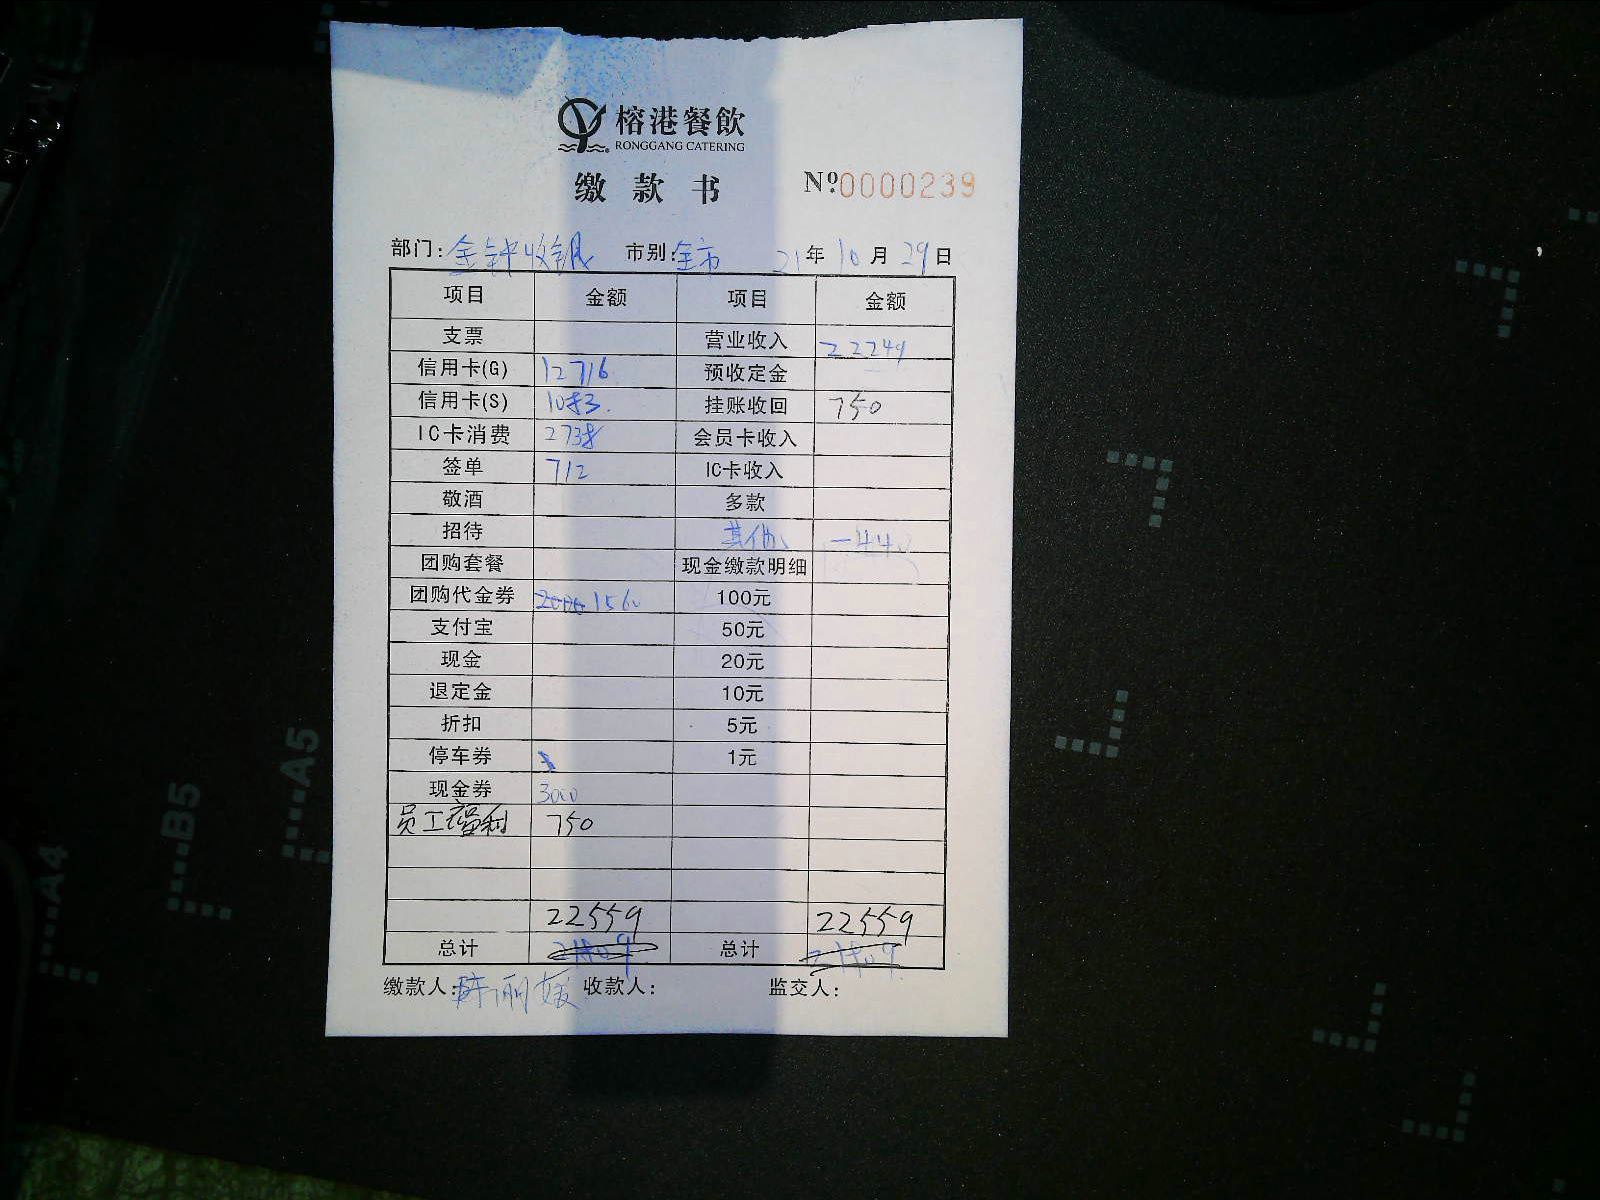 榕港餐飲
RONGGANG CATERING
缴款书
Nº0000239
部门:金钟收银 市别:全市 21年10月29日
项目 金额 项目 金额
支票 营业收入 22249
信用卡(G) 12716 预收定金
信用卡(S) 1083. 挂账收回 750
IC卡消费 2738 会员卡收入
签单 712 IC卡收入
敬酒 多款
招待 其他 -440
团购套餐 现金缴款明细
团购代金券 1560 100元
支付宝 50元
现金 20元
退定金 10元
折扣 5元
停车券 1元
现金券 3000
员工福利 750
22559 22559
总计 21809 总计 21809
缴款人: 丽媛 收款人: 监交人:
A5
B5
A4